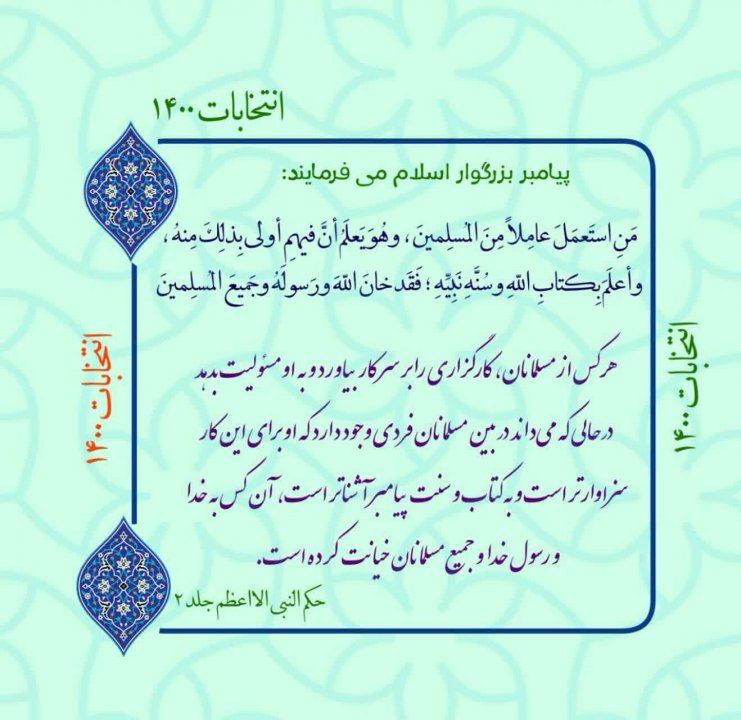 انتخابات ۱۴۰۰
پیامبر بزرگوار اسلام می فرمایند:
مَنِ استَعمَلَ عامِلاً مِنَ المُسلِمینَ ، وهُوَ یَعلَمُ أنَّ فیهِم أولی بِذلِكَ مِنهُ ،
وأعلَمَ بِكتابِ اللّهِ وسُنَّهِ نَبِیِّهِ ؛ فَقَد خانَ اللّهَ ورَسولَهُ وجَمیعَ المُسلِمینَ
هر کس از مسلمانان، کارگزاری را بر سر کار بیاورد و به او مسئولیت بدهد
در حالی که می داند در بین مسلمانان فردی وجود دارد که او برای این کار
سزاوارتر است و به کتاب و سنت پیامبر آشناتر است، آن کس به خدا
و رسول خدا و جمیع مسلمانان خیانت کرده است.
حکم النبی الااعظم جلد ۲
انتخابات ۱۴۰۰
انتخابات ۱۴۰۰